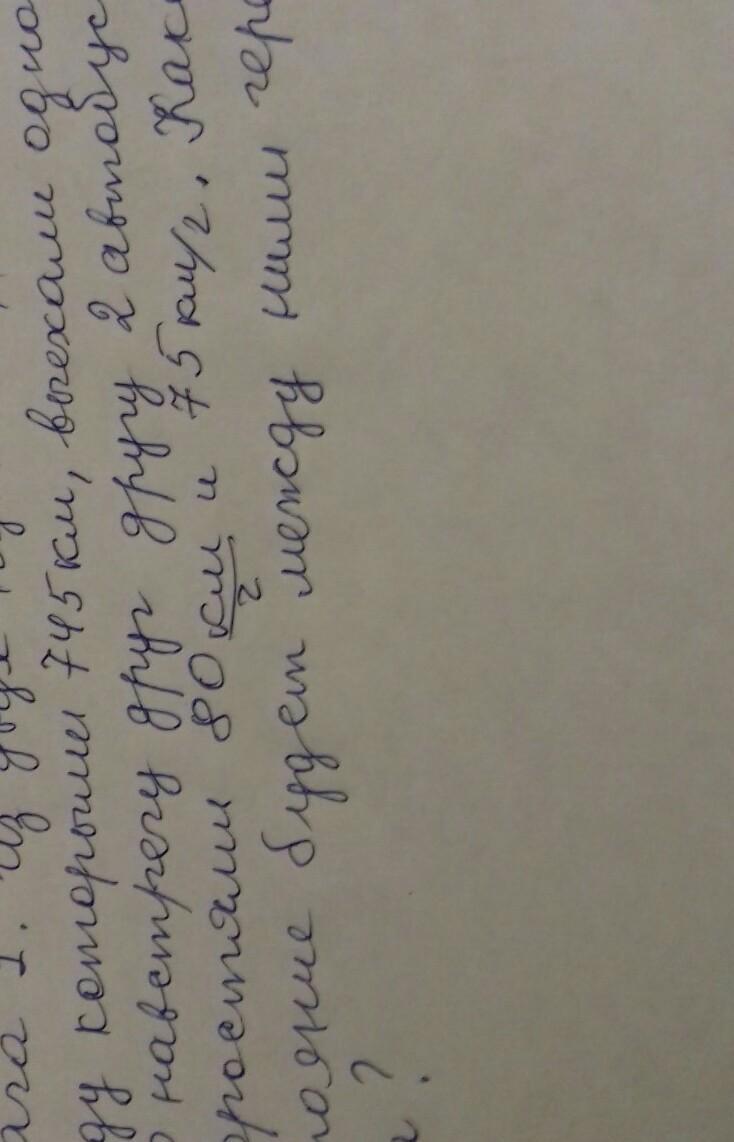 ача 1. Из двух
ду которыми 745 км, выехали одно
навстречу друг другу 2 автобус
ростями 80 км/ч и 75 км/ч. Как
тояние будет между ними чер
ч?